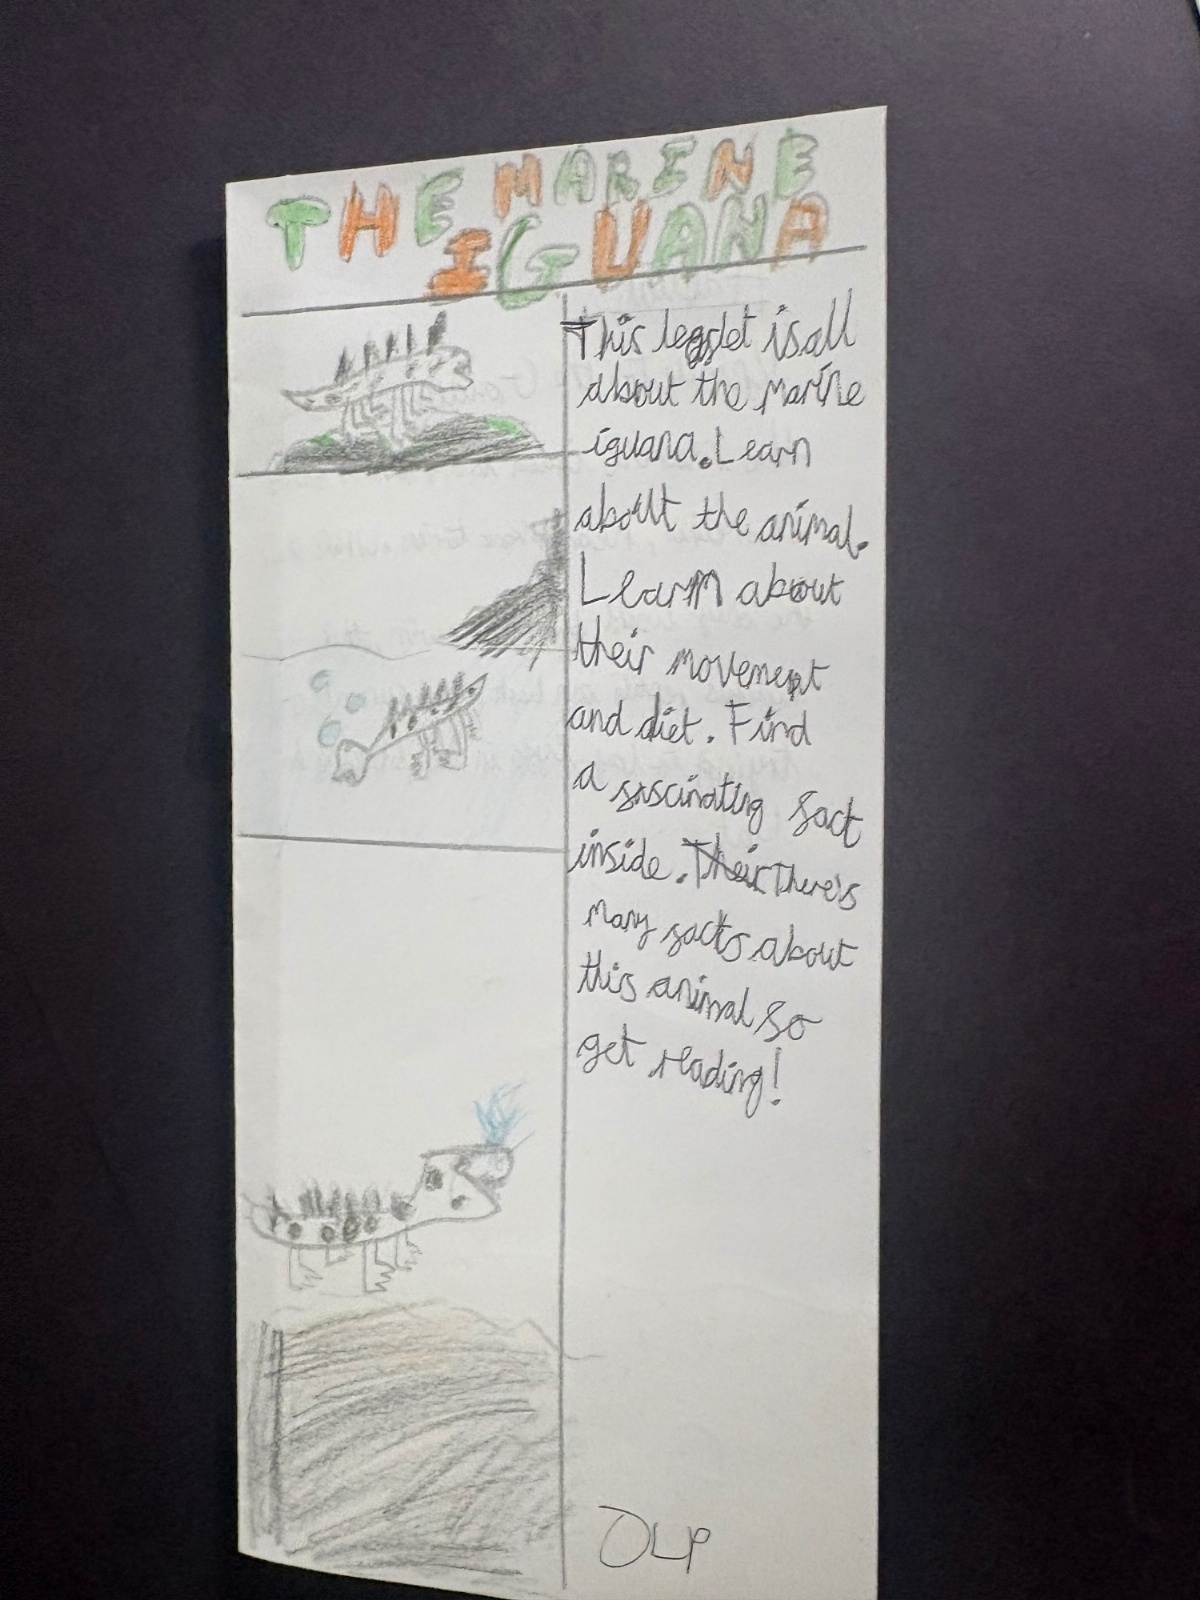 THE MARINE
IGUANA
This leaflet is all
about the marine
iguana. Learn
about the animal.
Learn about
their movement
and diet. Find
a fascinating fact
inside. Their There's
many facts about
this animal so
get reading!
OLP